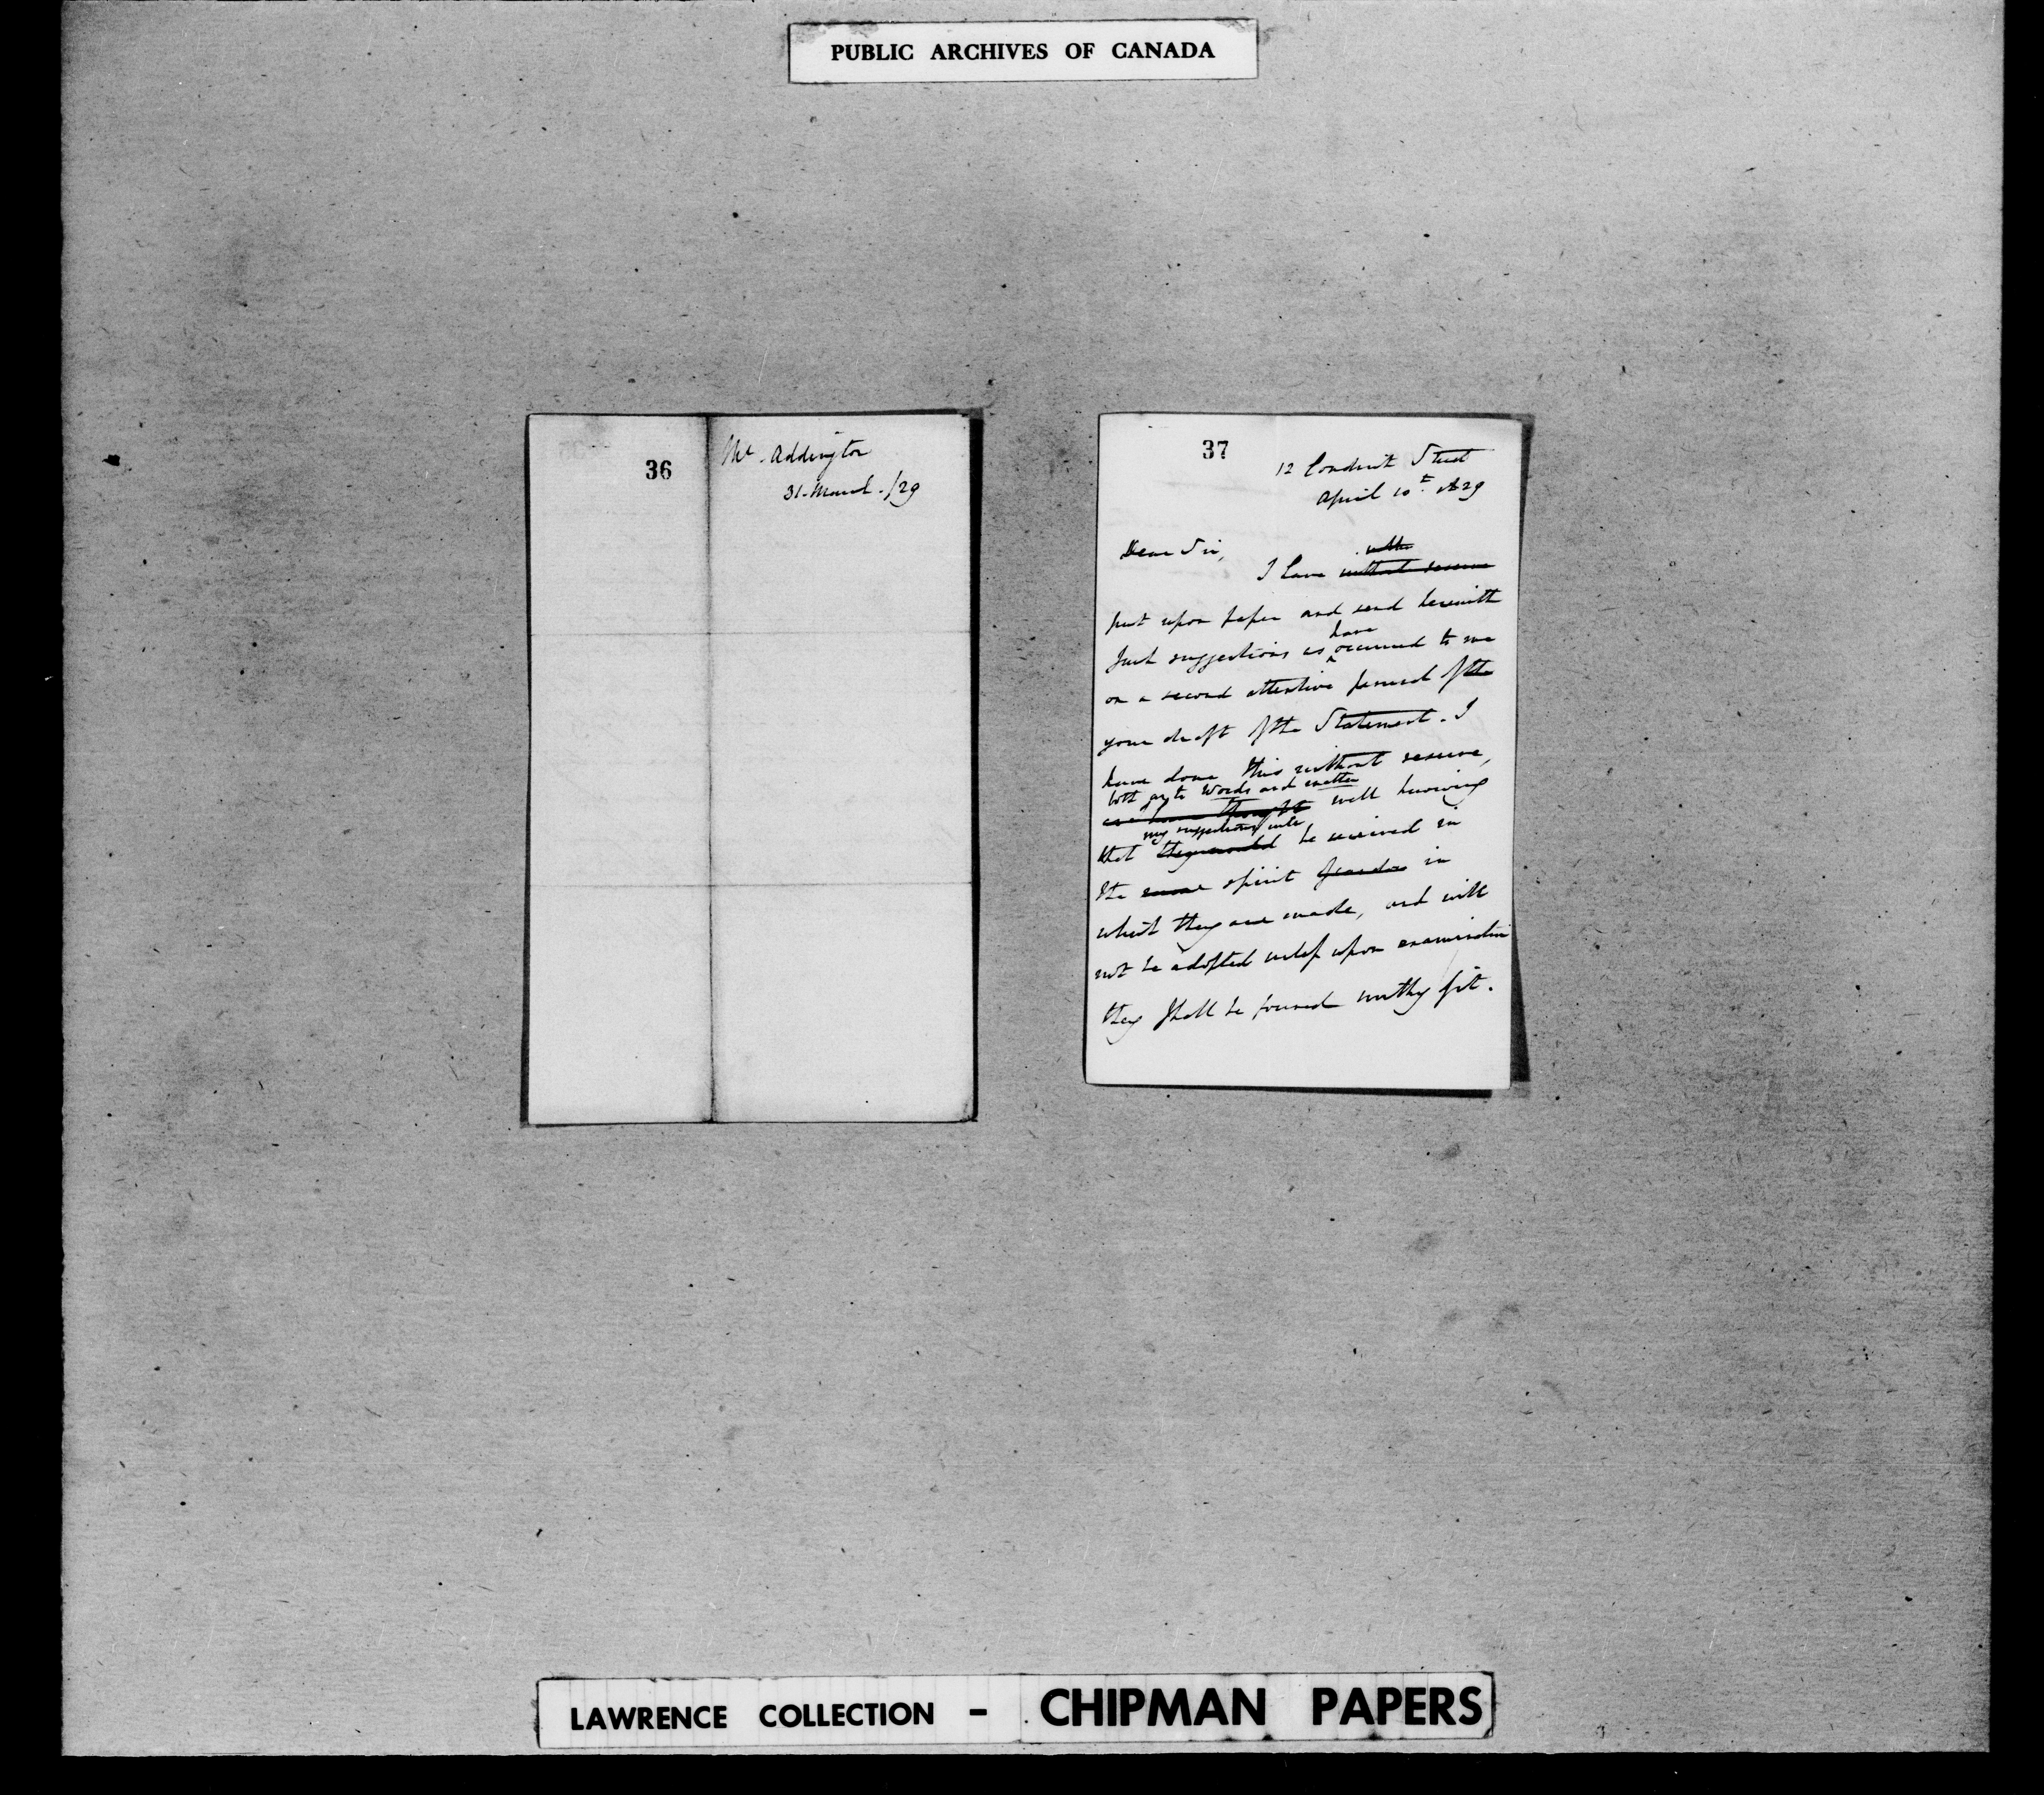 PUBLIC ARCHIVES OF CANADA
36
Mr. Addington
31. March. /29
37
12 Conduit Street
April 10th. 1829
Dear Sir,
I have without reserve
put upon paper and send herewith
have
such suggestions as occurred to me
on a second attentive perusal of the
your draft of the Statement. I
have done this without reserve,
both as to words and matter
well knowing
my suggestions will
that they would be received in
the same spirit of candor in
which they are made, and will
not be adopted unless upon examination
they shall be found worthy of it.
LAWRENCE COLLECTION - CHIPMAN PAPERS